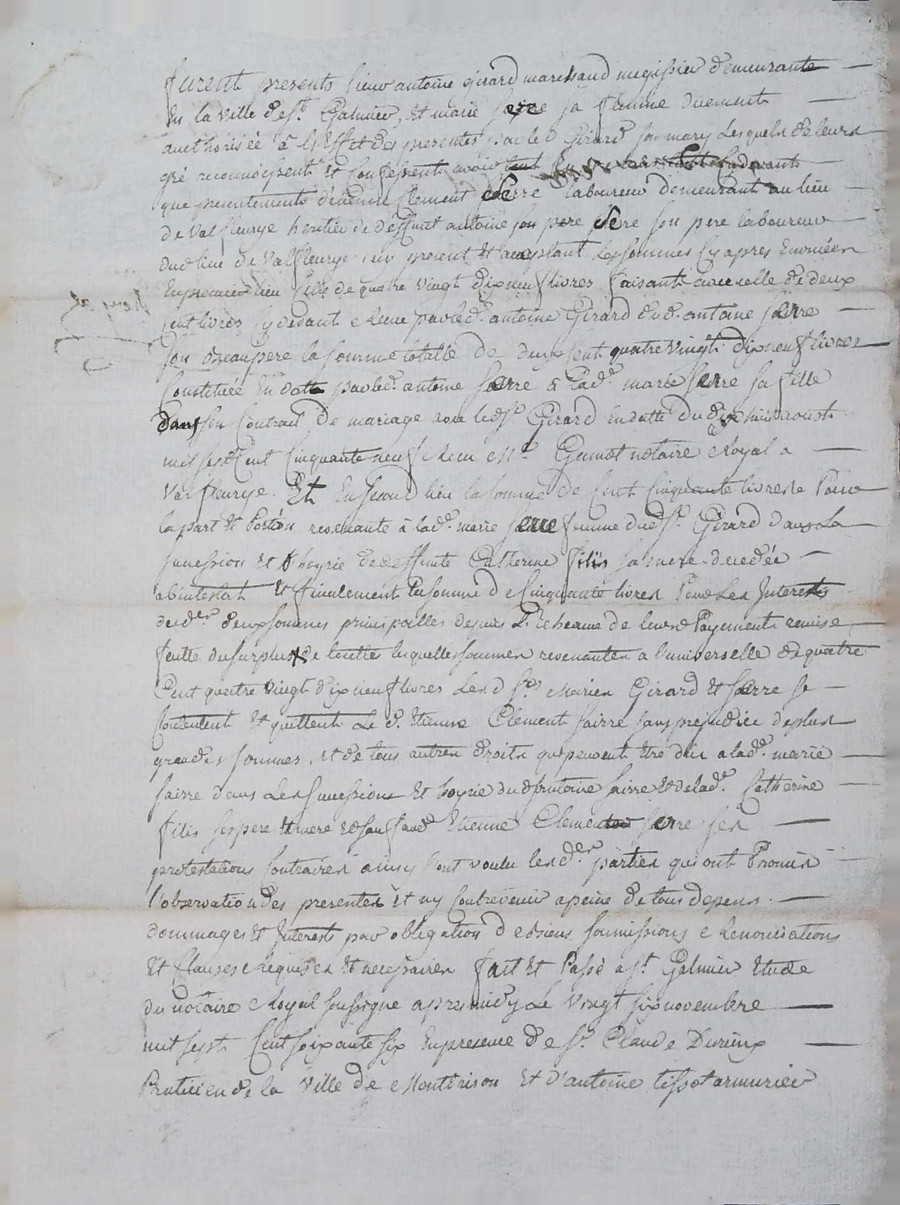 furent presents sieur antoine girard marchand megissier demeurante
En la ville de st. Galmier, et marie serre sa femme duement
authorisée a l'Effet des presentes par led Girard son mary lesquels de leurs
gré reconnoissent et confessent avoir
que presentements d'étienne Clement serre laboureur demeurant au lieu
de Valfleurye heritier de deffunt antoine son pere serre son pere laboureur
dud lieu de valfleurye icy present et acceptant les sommes cy apres
En premier lieu celle de quatre vingt dix neuf livres faisante avec celle de deux
cent livres cy devant Receue par led. antoine Girard dud. antoine serre
son Beaupere la somme totalle de deux cent quatre vingt dix neuf livres
Constituée En dotte par led. antoine serre a lad.e marie serre sa fille
dans son Contrat de mariage avec led sr. Girard en datte du dix huit aoust
mil sept Cent Cinquante neuf Receu Me. Gumot notaire Royal a
Valfleurye. Et En second lieu la somme de Cent Cinquante livres Pour
la part et Portion revenante a lad.e marie serre femme dud sr. Girard dans la
succession et hoyrie de deffunte Catherine fitis sa mere decedée
abintestat et finalement la somme de Cinquante livres Pour les Interests
desd.es deux sommes principalles depuis L'Echeance de leurs Payements remise
faitte du surplus de toutte lesquelles sommes revenantes a l'universelle de quatre
Cent quatre vingt dix neuf livres Lesd srs Mariés Girard et serre se
Contentent et quittent Le d. Etienne Clement sairre sans prejudice de plus
grandes sommes, et de tous autres droits qui peuvent Etre dus a lad.e marie
sairre dans Les successions Et hoyrie dud antoine sairre et de lad.e Catherine
fitis ses pere et mere et sauf aud Etienne Clement serre ses
protestations Contraires ainsy l'ont voulu lesd.es parties qui ont Promis
l'observation des presentes et ny Contrevenir a peine de tous depens
dommages et Interests par obligation de biens soumissions Renonciations
Et Clauses Requises et necessaires fait et Passé a st. Galmier Etude
du notaire Royal soussigne apres midy Le vingt six novembre
mil sept Cent soixante six En presence de sr. Claude Durieux
Praticien de la ville de Montbrison Et d'antoine tissot armurier